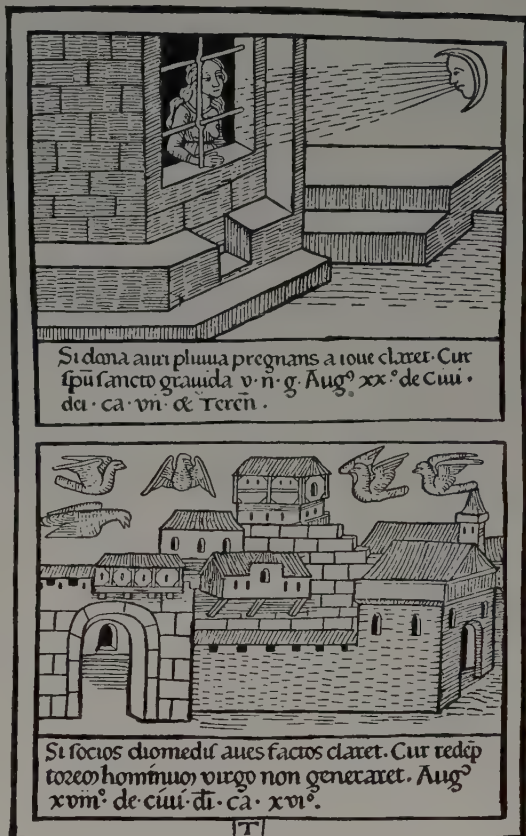 Si dona auri pluuia pregnans a ioue claret. Cur
spũ sancto grauida v. n̄. g. Augꝰ xx.° de Ciui.
dei. ca. vn. & Teren̄.
Si socios diomedis aues factos claret. Cur redēp
torem hominum virgo non generaret. Augꝰ
xviii° de ciui. dī. ca. xvi°.
T